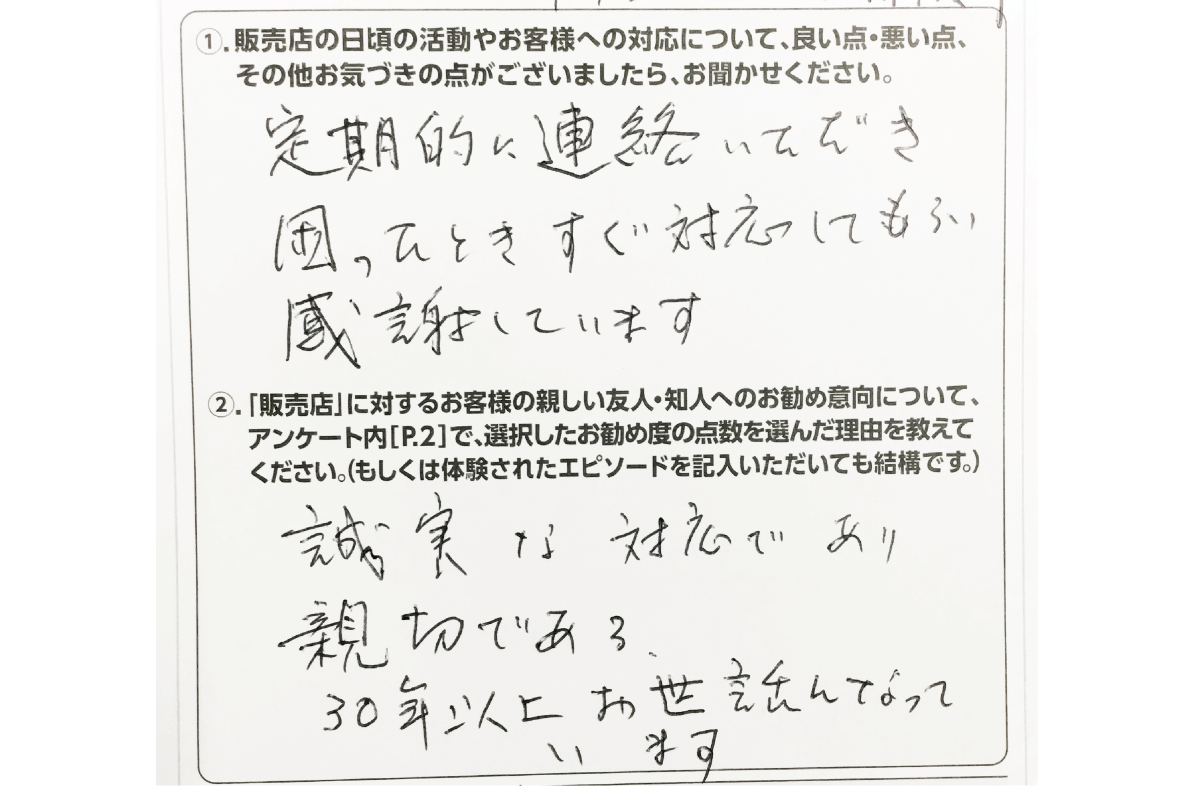 ①.販売店の日頃の活動やお客様への対応について、良い点・悪い点、
その他お気づきの点がございましたら、お聞かせください。
定期的に連絡いただき
困ったときすぐ対応してもらい
感謝しています
②.「販売店」に対するお客様の親しい友人・知人へのお勧め意向について、
アンケート内[P.2]で、選択したお勧め度の点数を選んだ理由を教えて
ください。(もしくは体験されたエピソードを記入いただいても結構です。)
誠実な対応であり
親切である.
30年以上お世話んなって
います